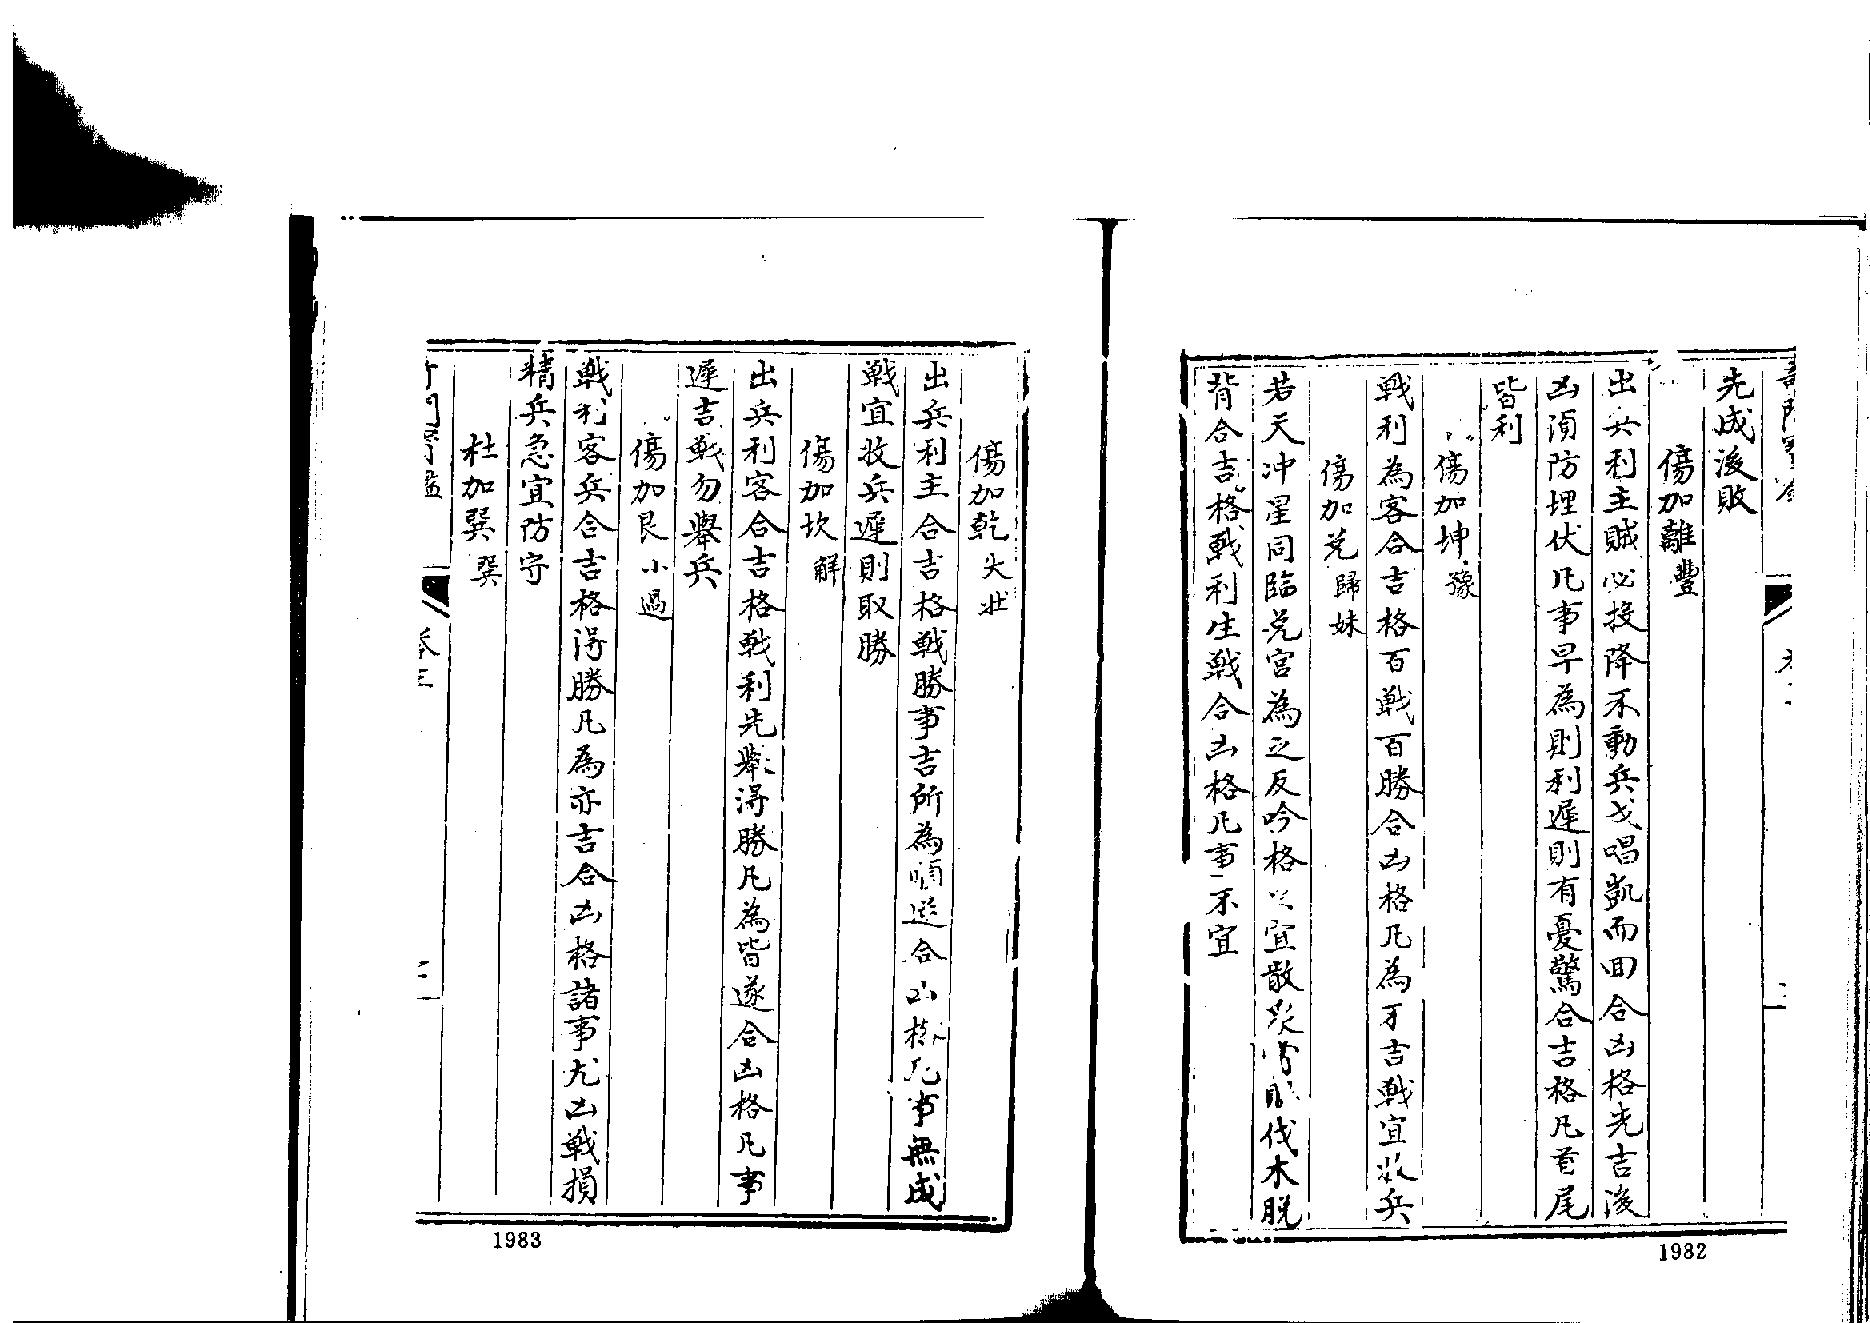 先成後敗
傷加離 豐
出兵利主賊必投降不動兵戈唱凱而回合凶格先吉後
凶須防埋伏凡事早為則利遲則有憂驚合吉格凡首尾
皆利
傷加坤 豫
戰利為客合吉格百戰百勝合凶格凡為不吉戰宜收兵
傷加兌 歸妹
若天冲星同臨兌宮為之反吟格只宜散眾賞賜伐木脫
背合吉格戰利生戰合凶格凡事不宜
1982
傷加乾 大壯
出兵利主合吉格戰勝事吉所為順遂合凶格凡事無成
戰宜收兵遲則取勝
傷加坎 解
出兵利客合吉格戰利先舉得勝凡為皆遂合凶格凡事
遲吉戰勿舉兵
傷加艮 小過
戰利客兵合吉格得勝凡為亦吉合凶格諸事尤凶戰損
精兵急宜防守
杜加巽 巽
卷三
1983